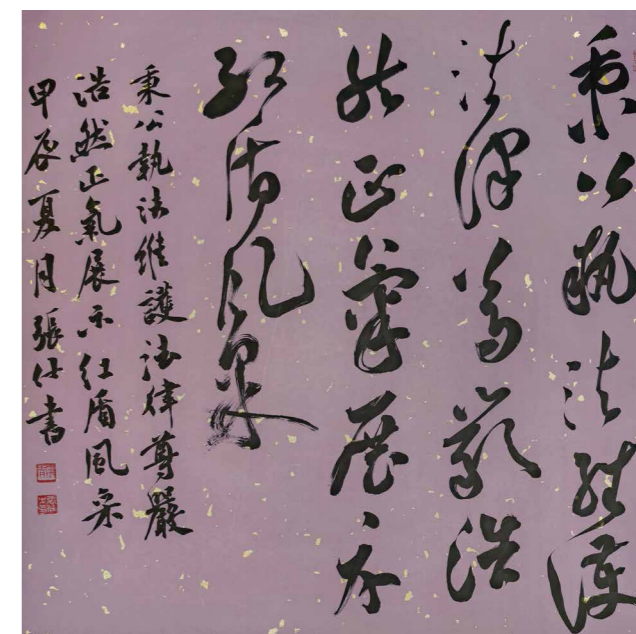 秉公執法維護
法律尊嚴浩
然正氣展示
紅盾風采
秉公執法維護法律尊嚴
浩然正氣展示红盾風采
甲辰夏月張仕書